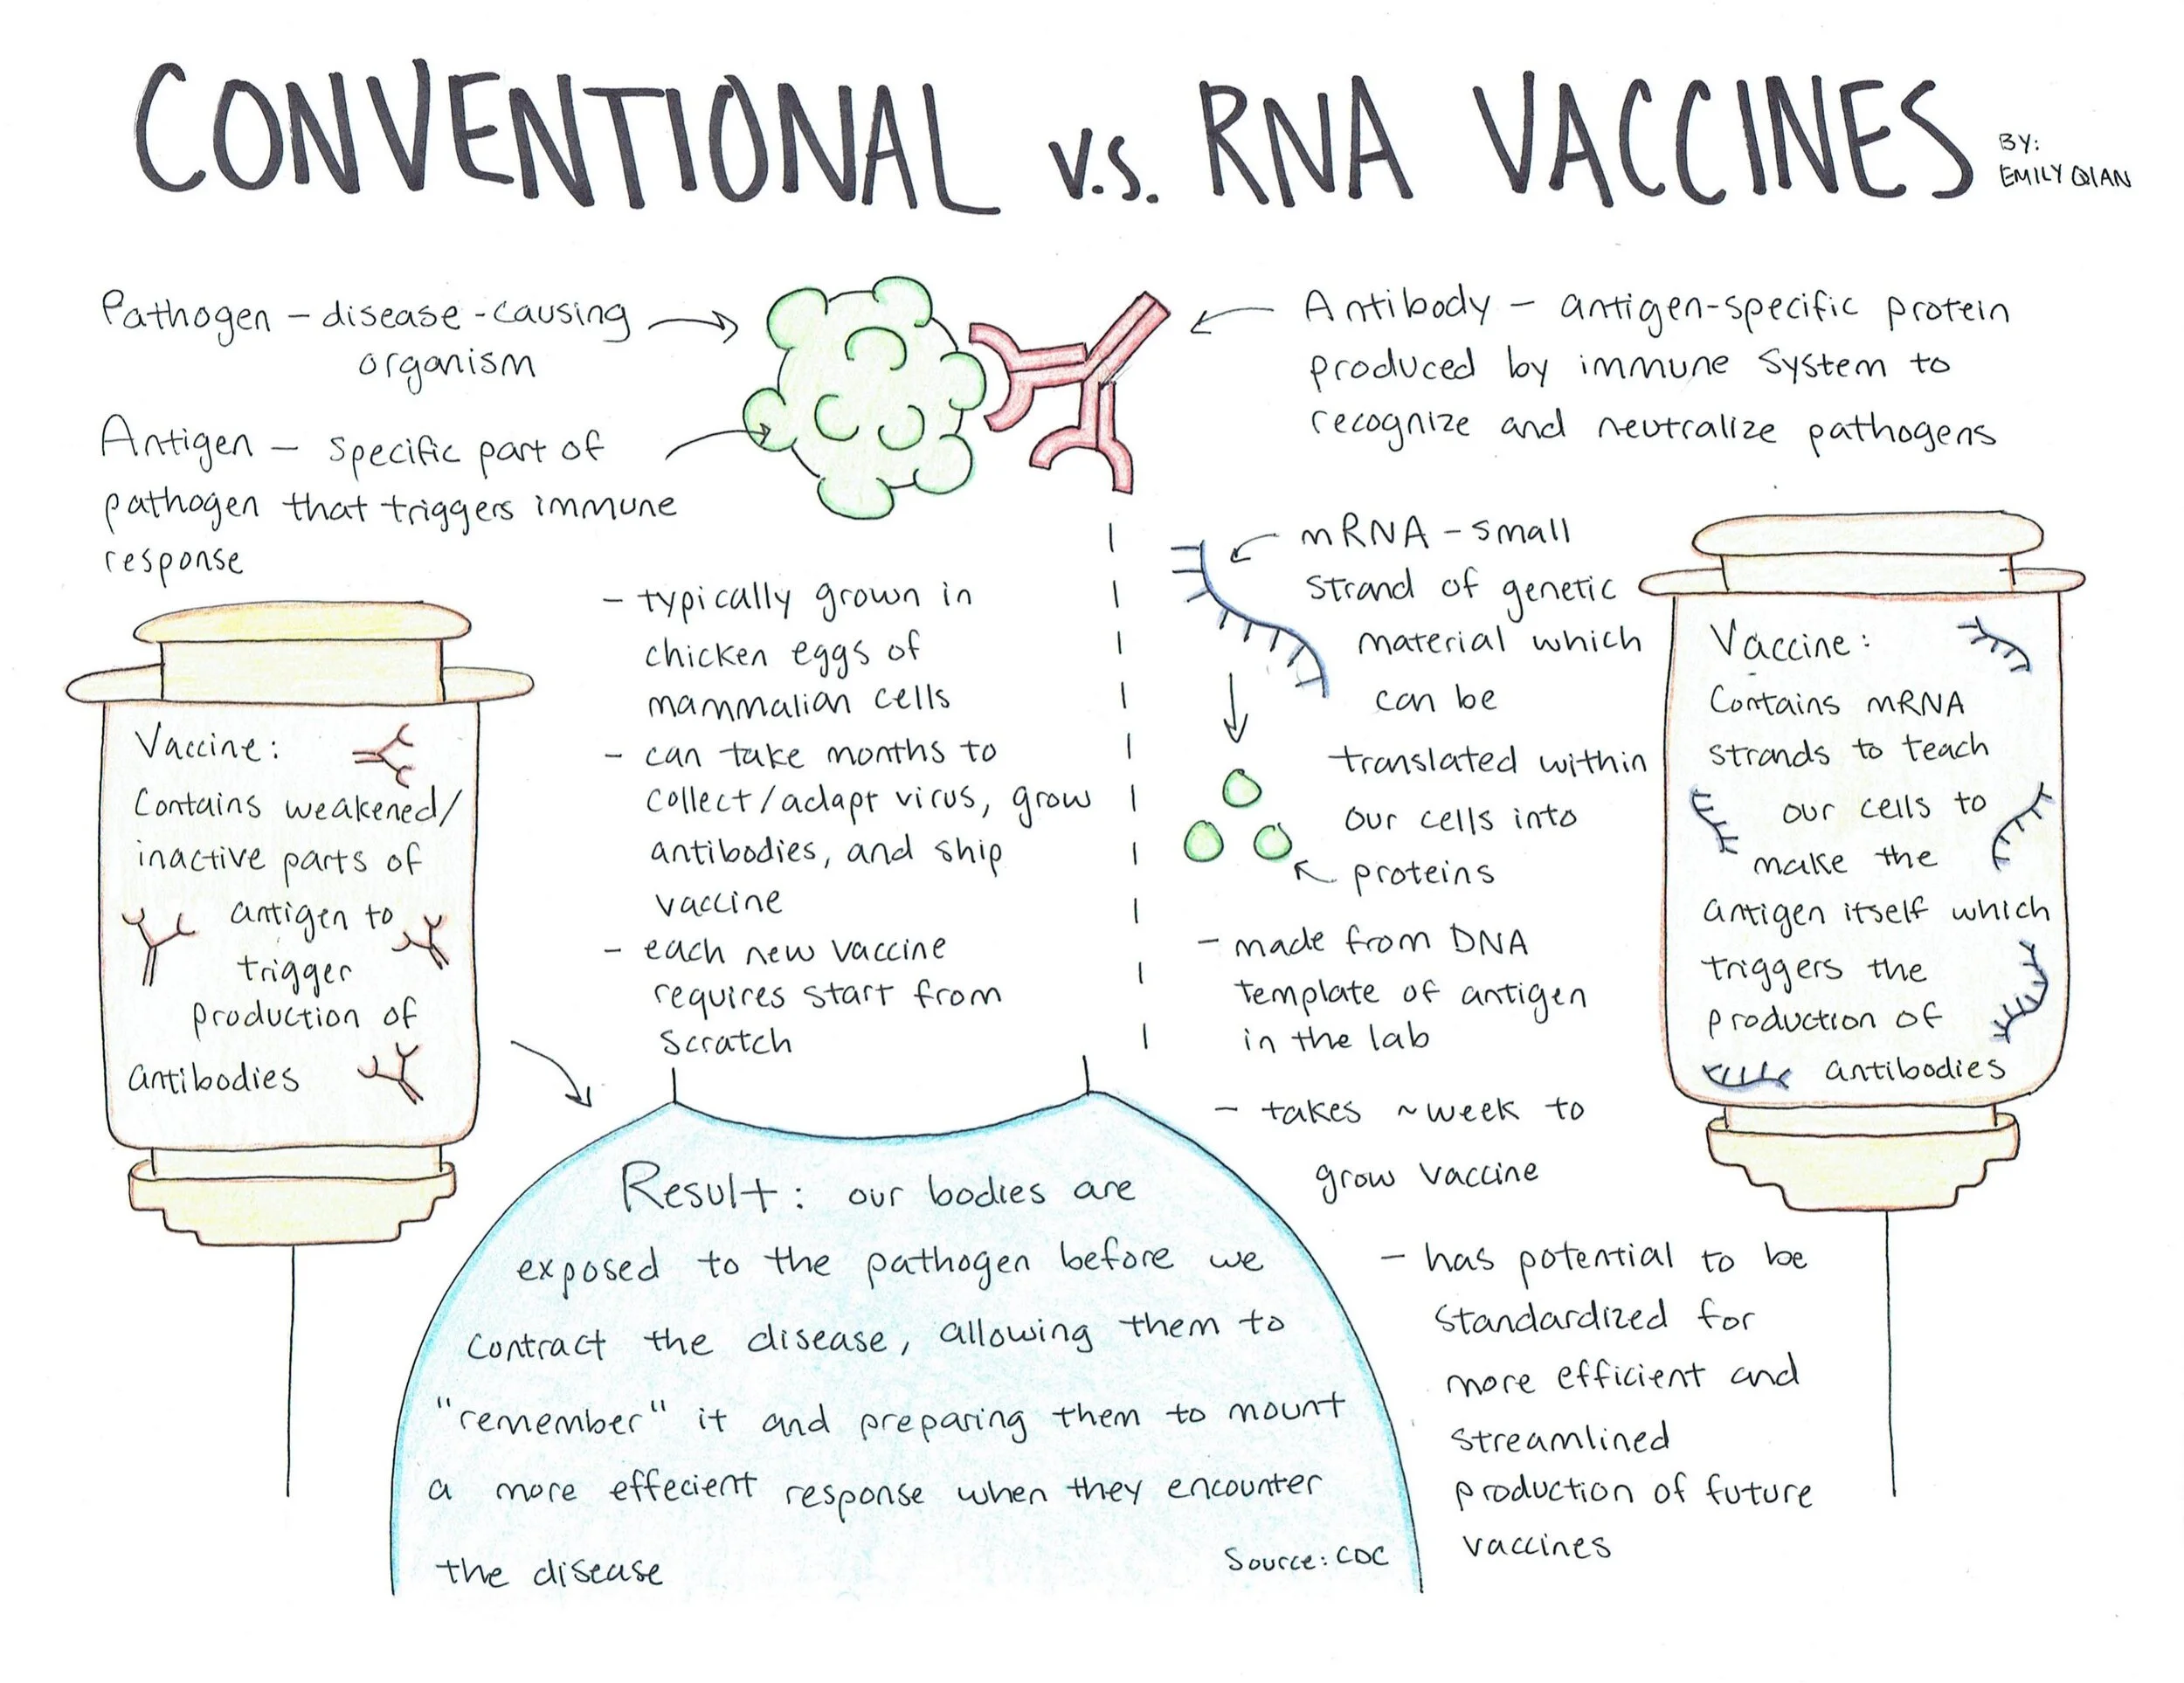 CONVENTIONAL v.s. RNA VACCINES
BY:
EMILY QIAN
Pathogen – disease-causing
organism
Antigen – specific part of
pathogen that triggers immune
response
Antibody – antigen-specific protein
produced by immune system to
recognize and neutralize pathogens
Vaccine:
Contains weakened/
inactive parts of
antigen to
trigger
production of
antibodies
– typically grown in
chicken eggs of
mammalian cells
– can take months to
collect/adapt virus, grow
antibodies, and ship
vaccine
– each new vaccine
requires start from
scratch
mRNA – small
strand of genetic
material which
can be
translated within
our cells into
proteins
– made from DNA
template of antigen
in the lab
– takes ~week to
grow vaccine
– has potential to be
standardized for
more efficient and
streamlined
production of future
vaccines
Vaccine:
Contains mRNA
strands to teach
our cells to
make the
antigen itself which
triggers the
production of
antibodies
Result: our bodies are
exposed to the pathogen before we
contract the disease, allowing them to
"remember" it and preparing them to mount
a more effecient response when they encounter
the disease
Source: CDC